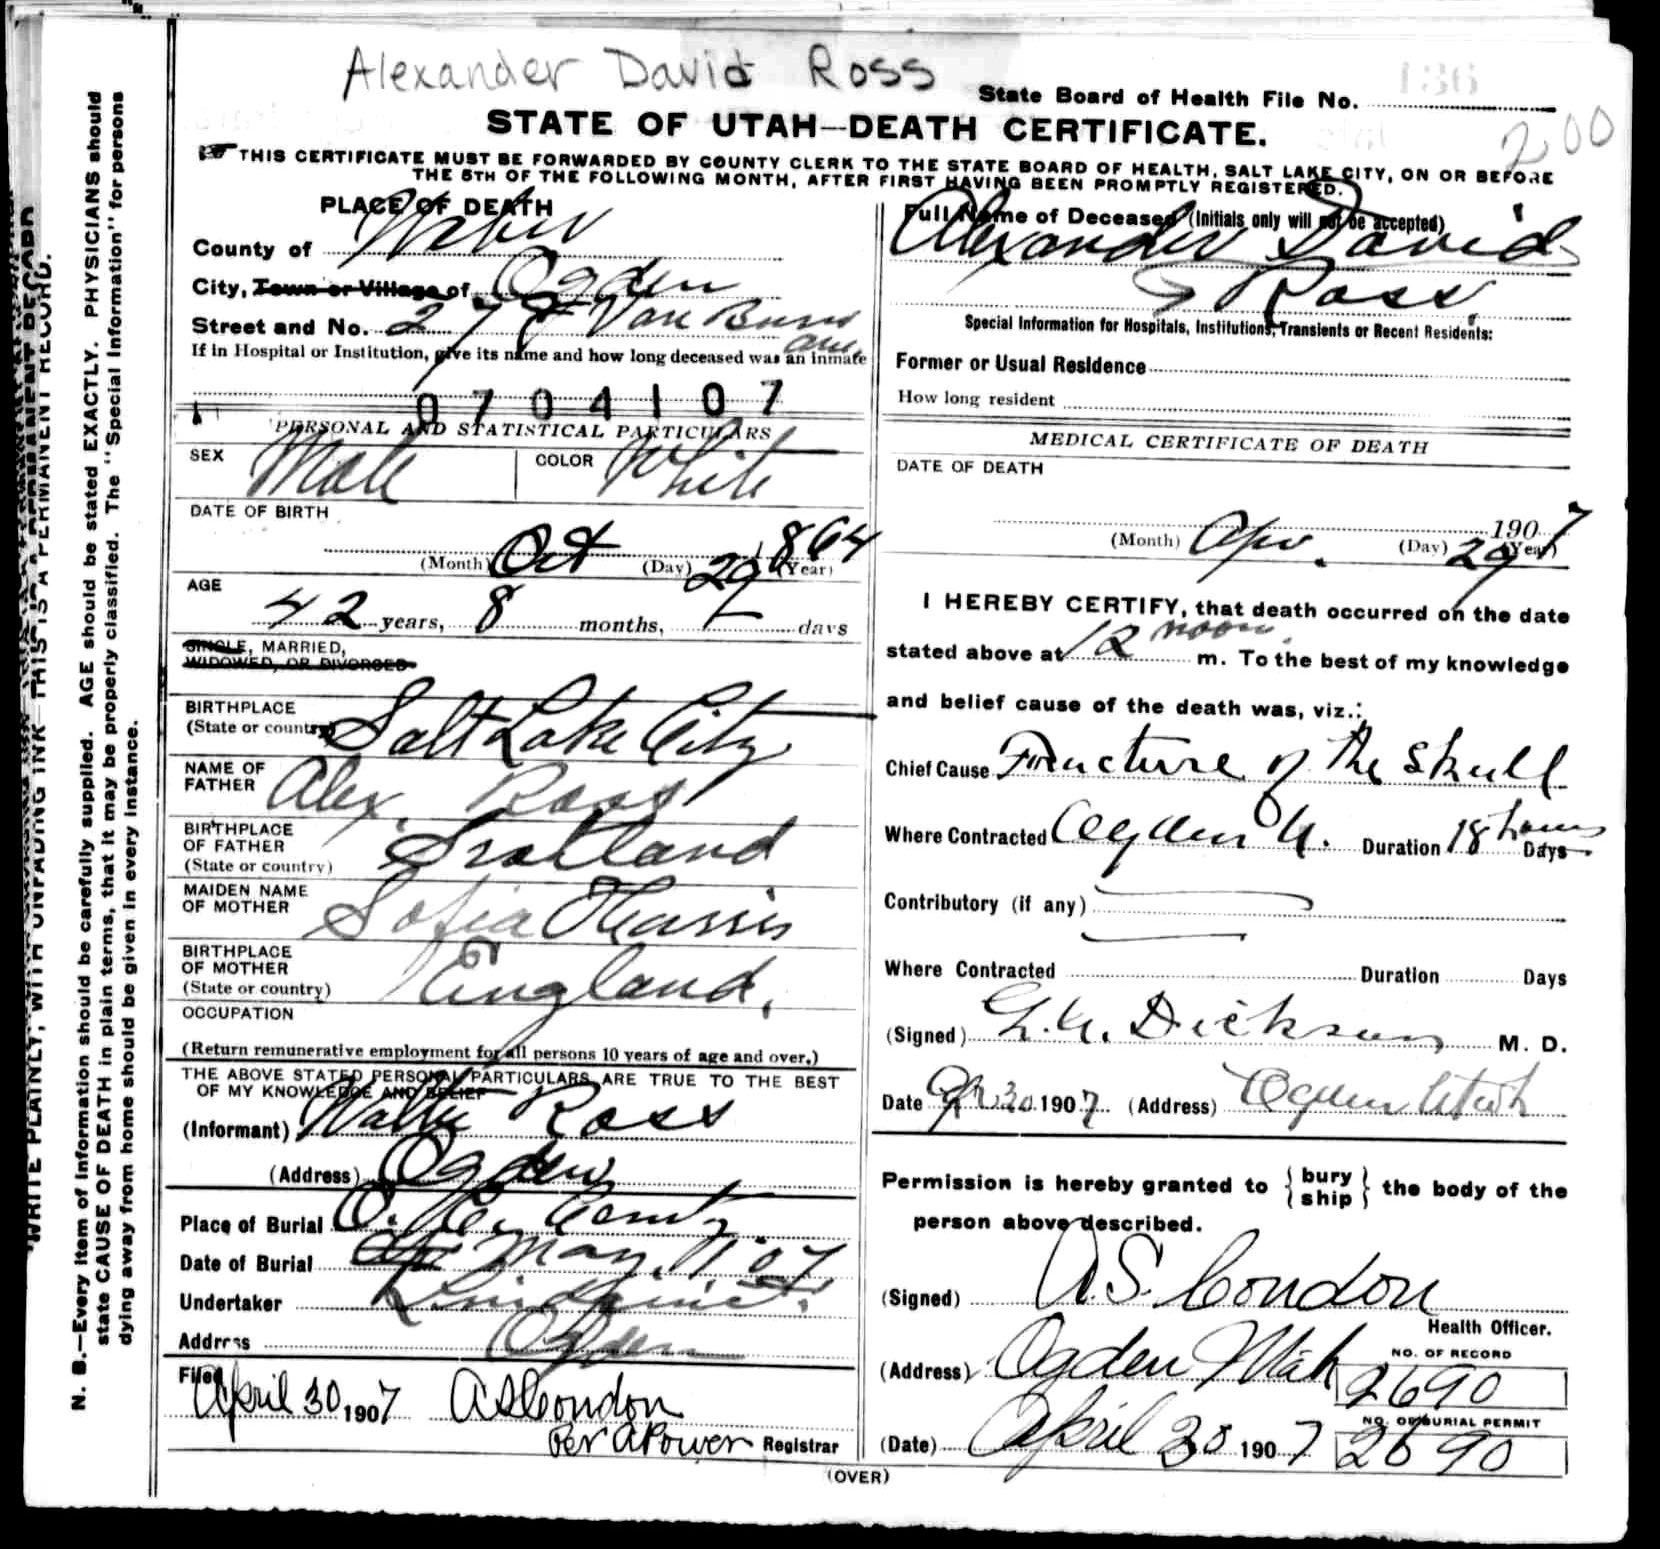 Alexander David Ross
State Board of Health File No.
136
200
STATE OF UTAH—DEATH CERTIFICATE.
THIS CERTIFICATE MUST BE FORWARDED BY COUNTY CLERK TO THE STATE BOARD OF HEALTH, SALT LAKE CITY, ON OR BEFORE
THE 5TH OF THE FOLLOWING MONTH, AFTER FIRST HAVING BEEN PROMPTLY REGISTERED.
WRITE PLAINLY, WITH UNFADING INK—THIS IS A PERMANENT RECORD.
N. B.—Every item of information should be carefully supplied. AGE should be stated EXACTLY. PHYSICIANS should
state CAUSE OF DEATH in plain terms, that it may be properly classified. The "Special Information" for persons
dying away from home should be given in every instance.
PLACE OF DEATH
County of Weber
City, Town or Village of Ogden
Street and No. Van Buren
Ave.
If in Hospital or Institution, give its name and how long deceased was an inmate
0704107
PERSONAL AND STATISTICAL PARTICULARS
SEX Male COLOR White
DATE OF BIRTH
(Month) Oct (Day) 29 1864 (Year)
AGE
42 years, 8 months, days
SINGLE, MARRIED,
WIDOWED, OR DIVORCED
BIRTHPLACE
(State or country) Salt Lake City
NAME OF
FATHER Alex. Ross
BIRTHPLACE
OF FATHER
(State or country) Scotland
MAIDEN NAME
OF MOTHER Sofia Harris
BIRTHPLACE
OF MOTHER
(State or country) England,
OCCUPATION
(Return remunerative employment for all persons 10 years of age and over.)
THE ABOVE STATED PERSONAL PARTICULARS ARE TRUE TO THE BEST
OF MY KNOWLEDGE AND BELIEF
(Informant) Walter Ross
(Address) Ogden
Place of Burial
Date of Burial May 1. 07
Undertaker Lindquist.
Address Ogden
Filed
April 30 1907 A S Condon
Per A Power Registrar
Full Name of Deceased (Initials only will not be accepted)
Alexander David
Ross.
Special Information for Hospitals, Institutions, Transients or Recent Residents:
Former or Usual Residence
How long resident
MEDICAL CERTIFICATE OF DEATH
DATE OF DEATH
(Month) Apr. (Day) 29 1907 (Year)
I HEREBY CERTIFY, that death occurred on the date
stated above at 12 noon. m. To the best of my knowledge
and belief cause of the death was, viz.:
Chief Cause Fracture of the Skull
Where Contracted Ogden U. Duration 18 hours Days
Contributory (if any)
Where Contracted Duration Days
(Signed) Dickson M. D.
Date Apr 30 1907. (Address) Ogden Utah
Permission is hereby granted to { bury ship } the body of the
person above described.
(Signed) A. S. Condon
Health Officer.
(Address) Ogden Utah
NO. OF RECORD
2690
NO. OF BURIAL PERMIT
2690
(Date) April 30 1907
(OVER)